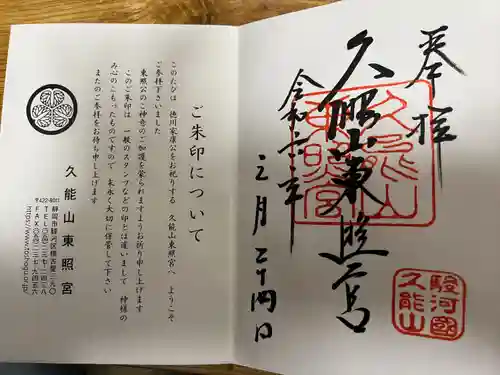 奉拝
久能山東照宮
令和六年
二月二十四日
久能山
東照宮
駿河国
久能山
ご朱印について
このたびは 徳川家康公をお祀りする 久能山東照宮へ ようこそ
ご参拝下さいました
東照公のご神壱のご加護を蒙られますようお祈り申し上げます
このご朱印は 一般のスタンプなどの印とは違いまして 神様の
み心のこもったものですので 末永く大切に保管して下さい
またのご参拝をお待ち申し上げます
久能山東照宮
〒422-8011
静岡市駿河区根古屋三九〇
TEL〇五四(二三七)二四三八
FAX〇五四(二三七)九四五六
https://www.toshogu.or.jp/